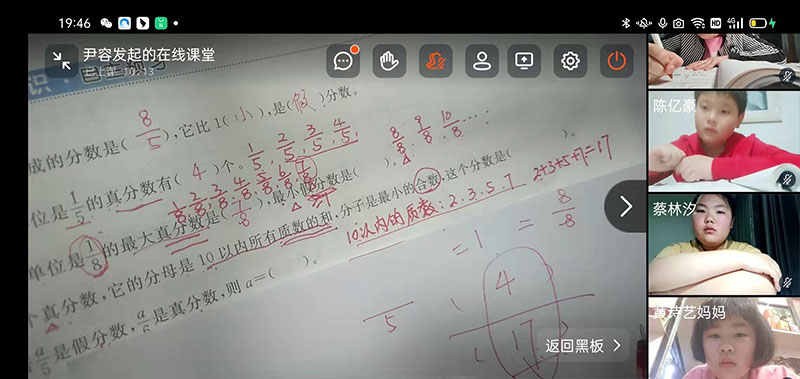 19:46
HD 4G
尹容发起的在线课堂
识·自主预习
成的分数是( 8/5 ),它比1( 小 ),是( 假 )分数。
位是1/5的真分数有( 4 )个。 1/5, 2/5, 3/5, 4/5,
8/8, 9/8, 10/8, ……
1/8 2/8 3/8 4/8 5/8 6/8 7/8
单位是1/8的最大真分数是( 7/8 ),最小假分数是( )。
个真分数,它的分母是10以内所有质数的和,分子是最小的合数,这个分数是( )。
10以内的质数:2.3.5.7
2+3+5+7=17
a/5是假分数,a/6是真分数,则a=( )。
=1 = 8/8
5
4
17
返回黑板
陈亿豪
蔡林汐
黄诗艺妈妈